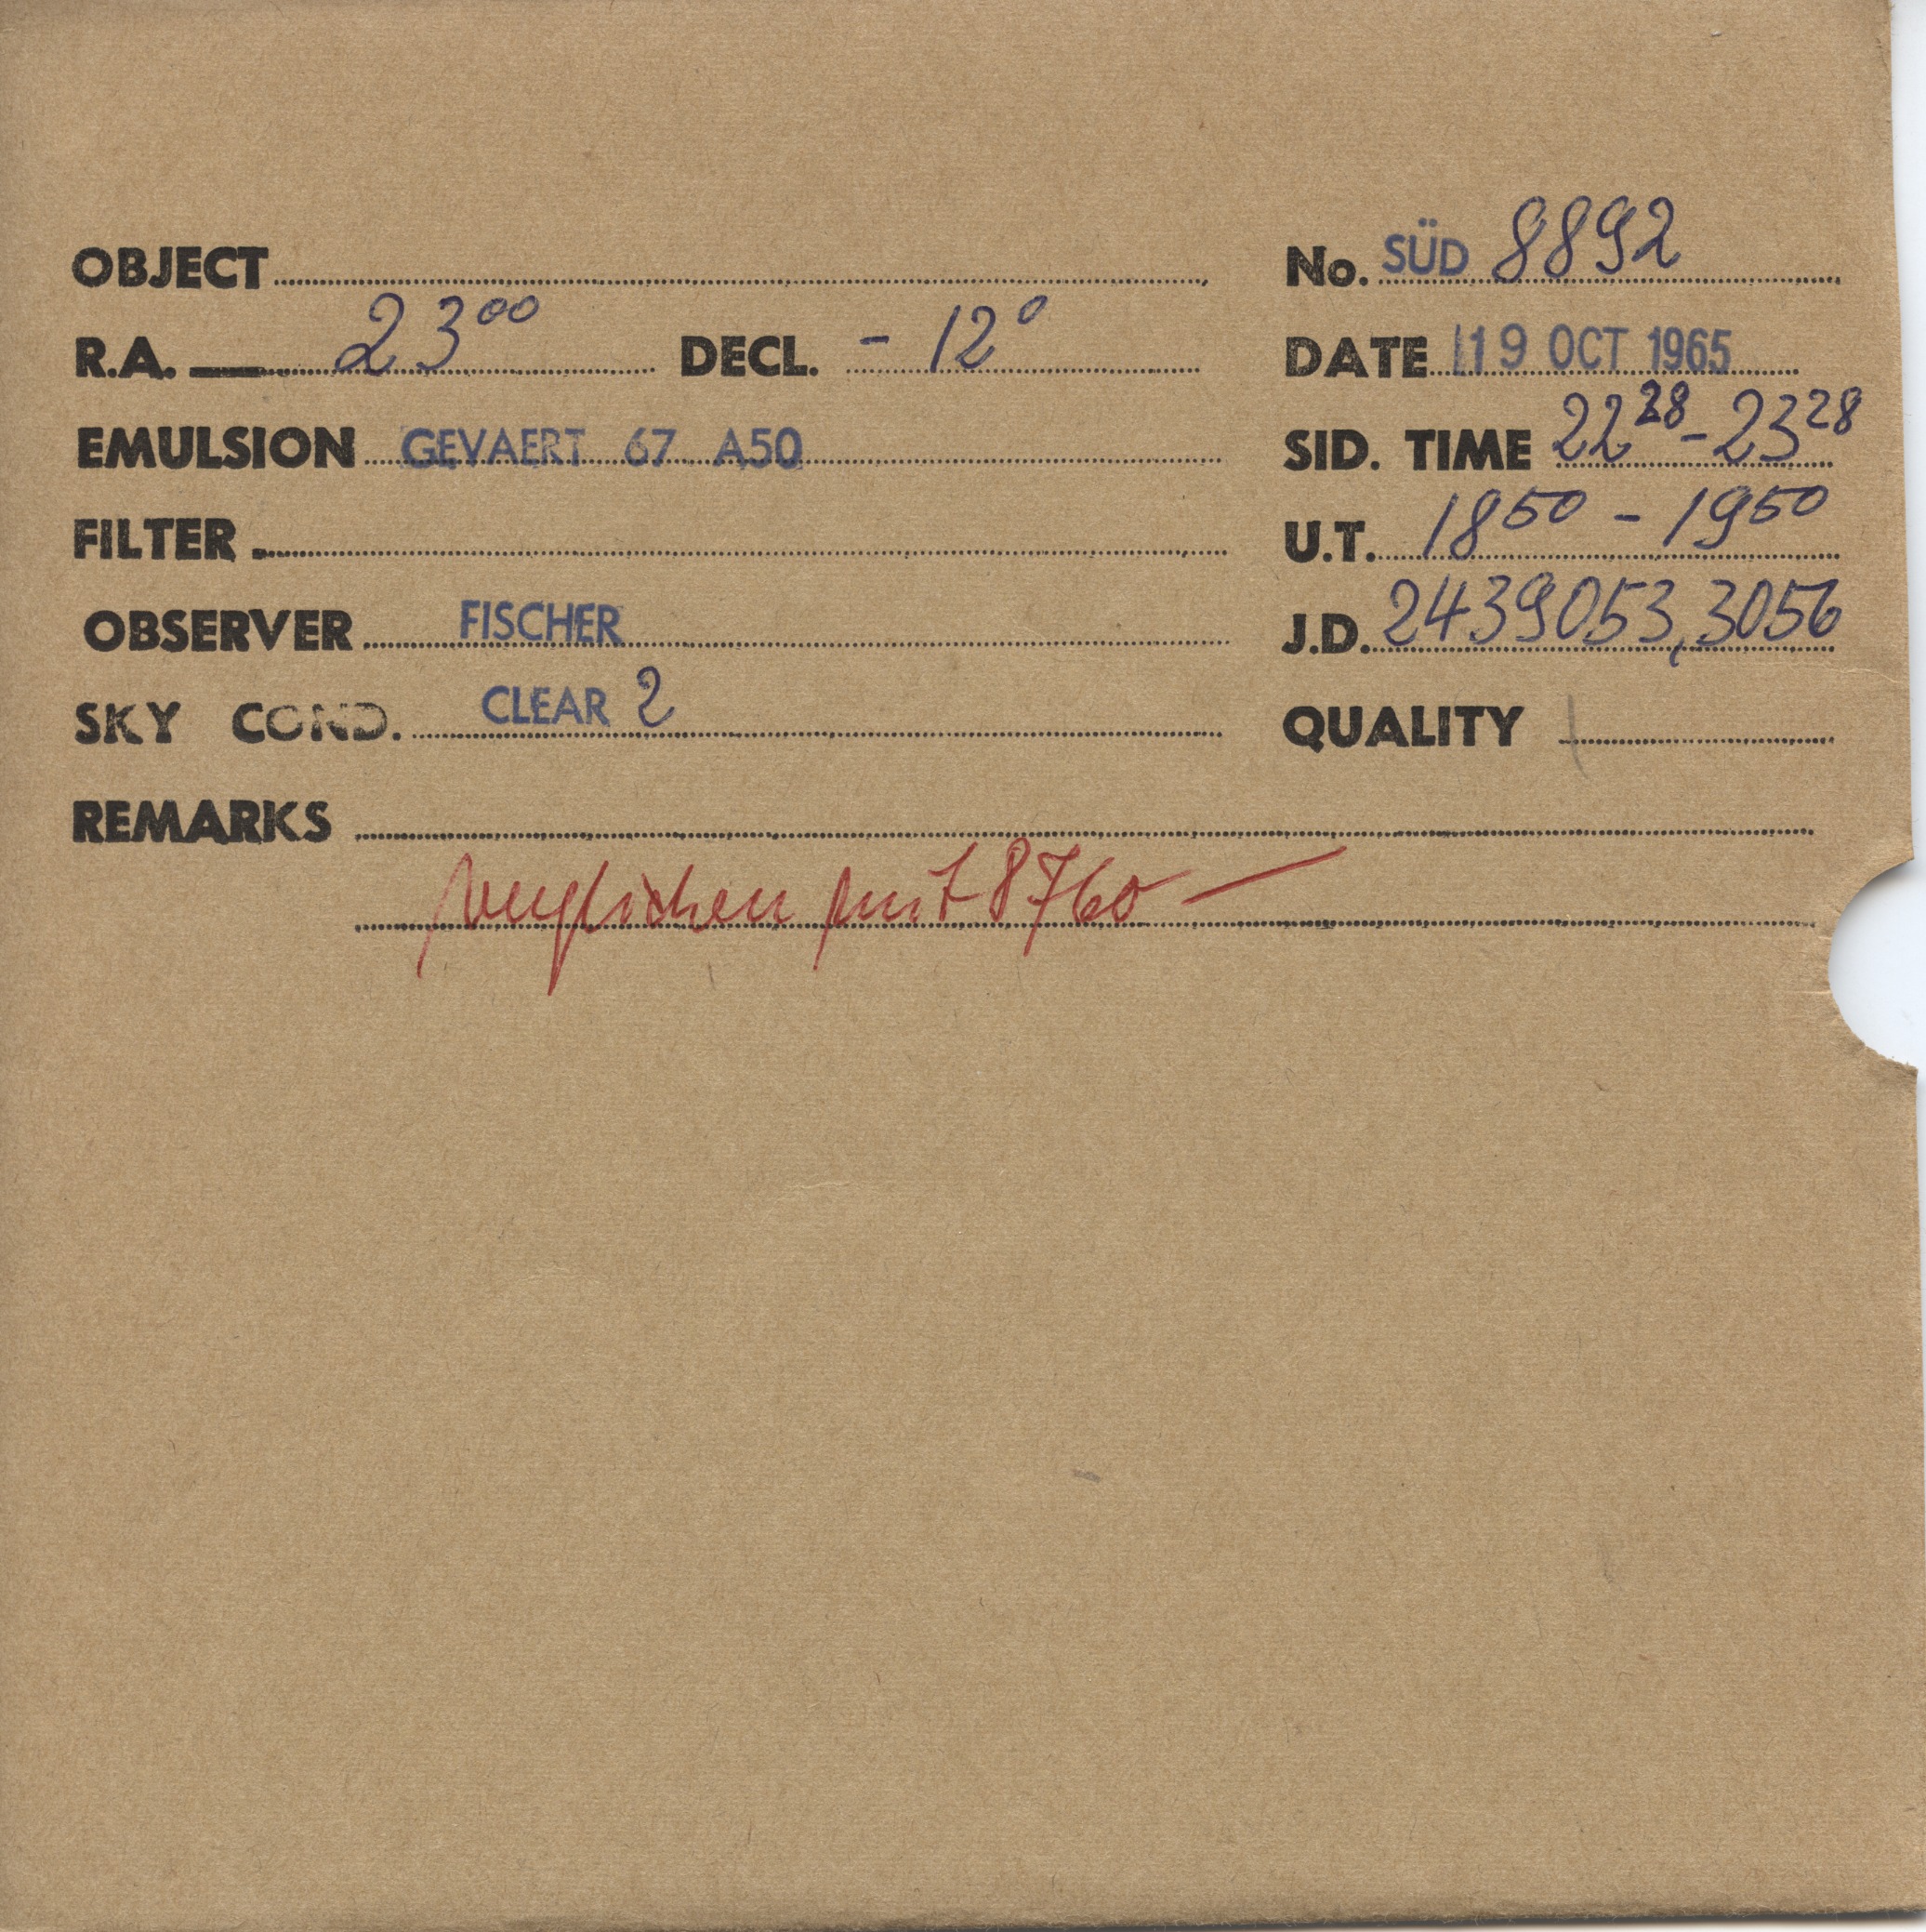 OBJECT
No. SÜD 8892
R.A. 23⁰⁰ DECL. - 12°
DATE 19 OCT 1965
EMULSION GEVAERT 67 A50
SID. TIME 22²⁸ - 23²⁸
FILTER
U.T. 18⁵⁰ - 19⁵⁰
OBSERVER FISCHER
J.D. 2439053,3056
SKY COND. CLEAR 2
QUALITY
REMARKS
verglichen mit 8760 —